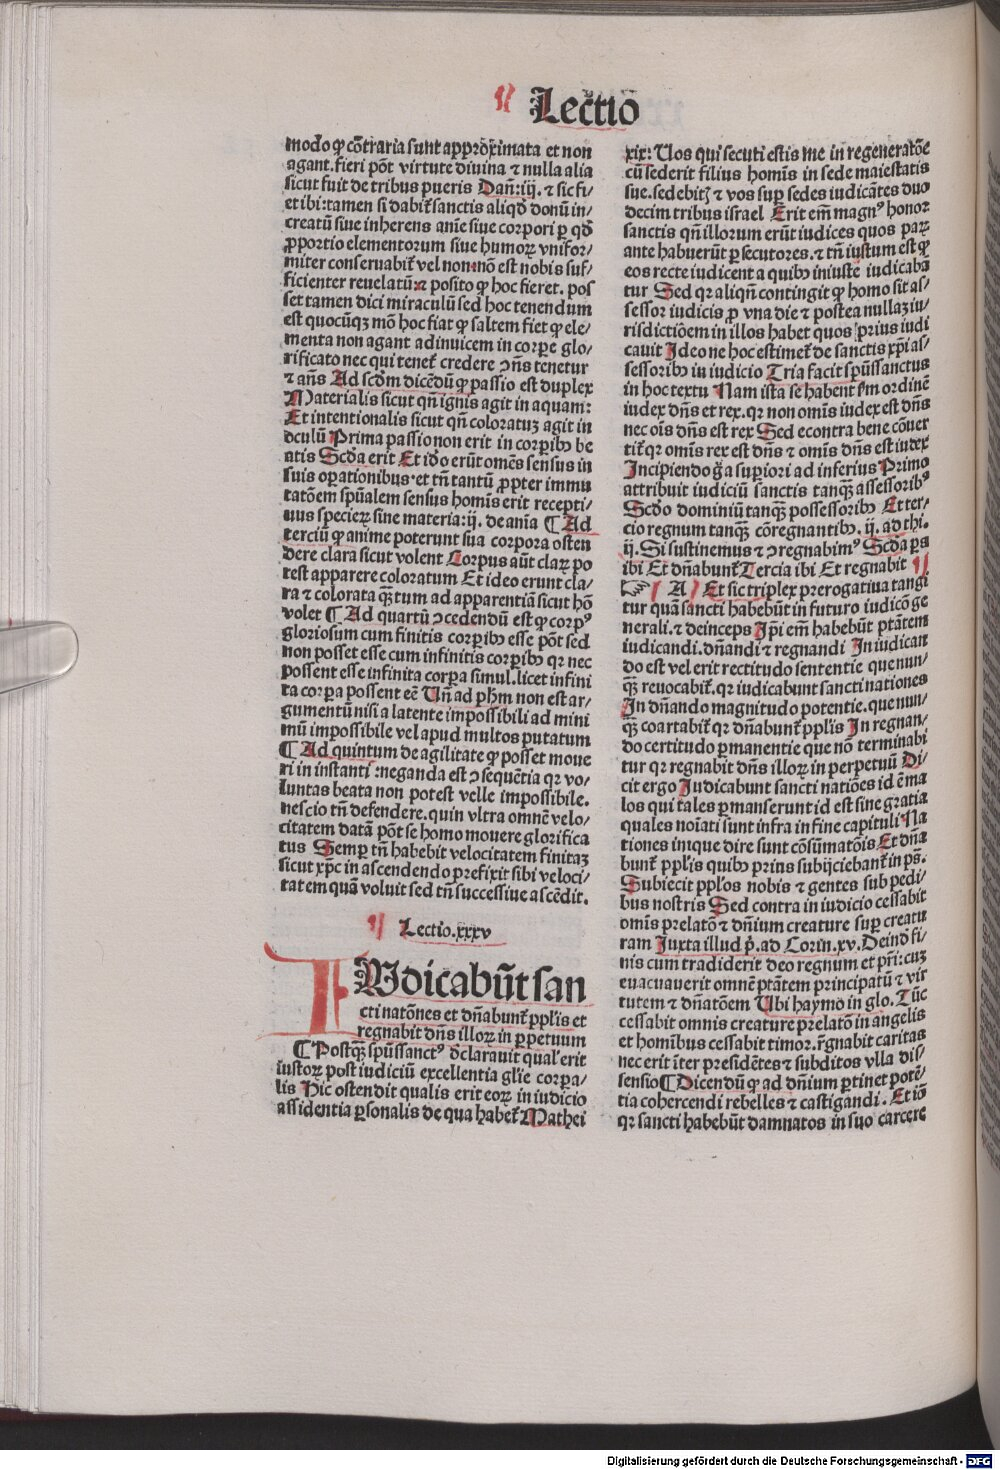 Lectiō
modo ꝙ cōtraria sunt approximata et non
agant. fieri pōt virtute diuina ⁊ nulla alia
sicut fuit de tribus pueris Dañ: iij. ⁊ sic fi/
et ibi: tamen si dabit̄ sanctis aliqđ donū in/
creatū siue inherens anīe siue corpori ꝑ qđ
ꝓportio elementorum siue humoꝝ vnifor/
miter conseruabit̄ vel non nō est nobis suf/
ficienter reuelatū: ⁊ posito ꝙ hoc fieret. pos
set tamen dici miraculū sed hoc tenendum
est quocūqꝫ mō hoc fiat ꝙ saltem fiet ꝙ ele/
menta non agant adinuicem in corpore glo/
rificato nec qui tenet̄ credere ɔn̄s tenetur
⁊ an̄s Ad scđm dicēdū ꝙ passio est duplex
Materialis sicut qn̄ ignis agit in aquam:
Et intentionalis sicut qn̄ coloratuꝫ agit in
oculū Prima passio non erit in corꝑibꝰ be
atis Scđa erit Et iđo erūt omēs sensus in
suis oꝑationibus. et tn̄ tantū ꝓpter immu
tatōem spūalem sensus homīs erit recepti/
uus specieꝝ sine materia: ij. de anīa ¶ Ad
terciū ꝙ anime poterunt sua corpora osten
dere clara sicut volent Corpus aūt claꝝ po
test apparere coloratum Et ideo erunt cla/
ra ⁊ colorata qꝫtum ad apparentiā sicut hō
volet ¶ Ad quartū ɔcedendū est ꝙ corpꝰ
gloriosum cum finitis corꝑibꝰ esse pōt sed
non posset esse cum infinitis corꝑibꝰ qꝛ nec
possent esse infinita corꝑa simul. licet infini
ta corꝑa possent eē Un̄ ad ph̄m non est ar/
gumentū nisi a latente impossibili ad mini
mū impossibile vel apud multos putatum
¶ Ad quintum de agilitate ꝙ posset moue
ri in instanti: neganda est ɔsequētia qꝛ vo/
luntas beata non potest velle impossibile.
nescio tn̄ defendere. quin vltra omnē velo/
citatem datā pōt se homo mouere glorifica
tus Semꝑ tn̄ habebit velocitatem finitaꝫ
sicut xp̄c in ascendendo prefixit sibi veloci/
tatem quā voluit sed tn̄ successiue ascēdit.
Lectio. xxxv
IUdicabūt san
cti natōnes et dn̄abunt̄ pplīs et
regnabit dn̄s illoꝝ in ꝑpetuum
¶ Postqꝫ spūssanctꝰ declarauit qual' erit
iustoꝝ post iudiciū excellentia glīe corꝑa/
lis Hic ostendit qualis erit eoꝝ in iudicio
assidentia ꝑsonalis de qua habet̄ Mathei
xix: Uos qui secuti estis me in regeneratōe
cū sederit filius homīs in sede maiestatis
sue. sedebitꝭ ⁊ vos suꝑ sedes iudicātes duo
decim tribus israel Erit em̄ magnꝰ honor
sanctis qn̄ illorum erūt iudices quos paꝝ
ante habuerūt ꝑsecutores. ⁊ tn̄ iustum est ꝙ
eos recte iudicent a quibꝰ iniuste iudicaba
tur Sed qꝛ aliqn̄ contingit ꝙ homo sit as/
sessor iudicis ꝑ vna die ⁊ postea nullaꝫ iu/
risdictiōem in illos habet quos prius iudi
cauit Ideo ne hoc estimet̄ de sanctis xp̄i as/
sessoribꝰ in iudicio Tria facit spūssanctus
in hoc textu Nam ista se habent ẜm ordinē
iudex dn̄s et rex. qꝛ non omīs iudex est dn̄s
nec oīs dn̄s est rex Sed econtra bene cōuer
tit̄ qꝛ omīs rex est dn̄s ⁊ omīs dn̄s est iudex
Incipiendo g̃a suꝑiori ad inferius Primo
attribuit iudiciū sanctis tanqꝫ assessoribꝰ
Scđo dominiū tanqꝫ possessoribꝰ Et ter/
cio regnum tanqꝫ cōregnantibꝰ. ij. ad thi.
ij. Si sustinemus ⁊ ɔregnabimꝰ Scđa ps
ibi Et dn̄abunt̄ Tercia ibi Et regnabit
A Et sic triplex prerogatiua tangi
tur quā sancti habebūt in futuro iudicō ge
nerali. ⁊ deinceps Ip̄i em̄ habebūt ptātem
iudicandi. dn̄andi ⁊ regnandi In iudican
do est vel erit rectitudo sententie que nun/
qꝫ reuocabit̄. qꝛ iudicabunt sancti nationes
In dn̄ando magnitudo potentie. que nun/
qꝫ coartabit̄ qꝛ dn̄abunt̄ pplīs In regnan/
do certitudo ꝑmanentie que nō terminabi
tur qꝛ regnabit dn̄s illoꝝ in perpetuū Di/
cit ergo Iudicabunt sancti natiōes id ē ma
los qui tales ꝑmanserunt id est sine gratia
quales noīati sunt infra in fine capituli Na
tiones inique dire sunt cōsūmatōis Et dn̄a
bunt̄ pplīs quibꝰ prius subijciebant̄ in ps̄.
Subiecit pplōs nobis ⁊ gentes sub pedi/
bus nostris Sed contra in iudicio cessabit
omīs prelatō ⁊ dn̄ium creature suꝑ creatu
ram Iuxta illud p̄. ad Corin. xv. Deinđ fi/
nis cum tradiderit deo regnum et pr̄i: cuꝫ
euacuauerit omnē ptātem principatū ⁊ vir
tutem ⁊ dn̄atōem Ubi haymo in glo. Tūc
cessabit omnis creature prelatō in angelis
et homībus cessabit timor. r̄gnabit caritas
nec erit īter presidētes ⁊ subditos vlla dis/
sensio ¶ Dicendū ꝙ ad dn̄ium ꝑtinet potē/
tia cohercendi rebelles ⁊ castigandi. Et iō
qꝛ sancti habebūt damnatos in suo carcere
Digitalisierung gefördert durch die Deutsche Forschungsgemeinschaft - DFG